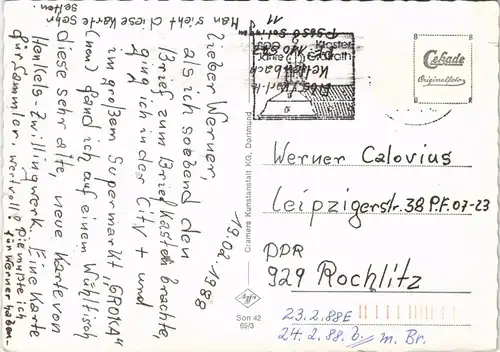 Man sieht diese Karte sehr
selten.
Lieber Werner,
als ich soebend den
Brief zum Briefkasten brachte,
ging ich in der City + und
im großem Supermarkt "GROKA"
(neu) fand ich auf einen Wühltisch
diese sehr alte, neue Karte von
Henkels-Zwillingwerk. Eine Karte
für Sammler, wertvoll! Die mußte ich
für Werner haben.
19.02.1988
11
Kloster
Jahre Gräfrath
Cramers Kunstanstalt KG, Dortmund
Agfa
Son 42
65/3
Cekade
Originalfotos
Werner Calovius
Leipzigerstr. 38 P.F. 07-23
DDR
929 Rochlitz
23.2.88E
24.2.88. b/m Br.